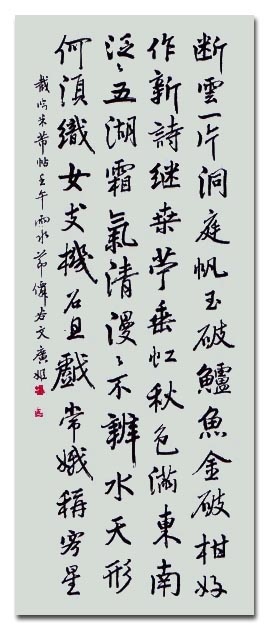 断雲一片洞庭帆玉破鱸魚金破柑好
作新詩继桒苧垂虹秋色滿東南
泛〻五湖霜氣清漫〻不辨水天形
何須織女支機石且戲常娥稱客星
米芾帖壬午雨水節